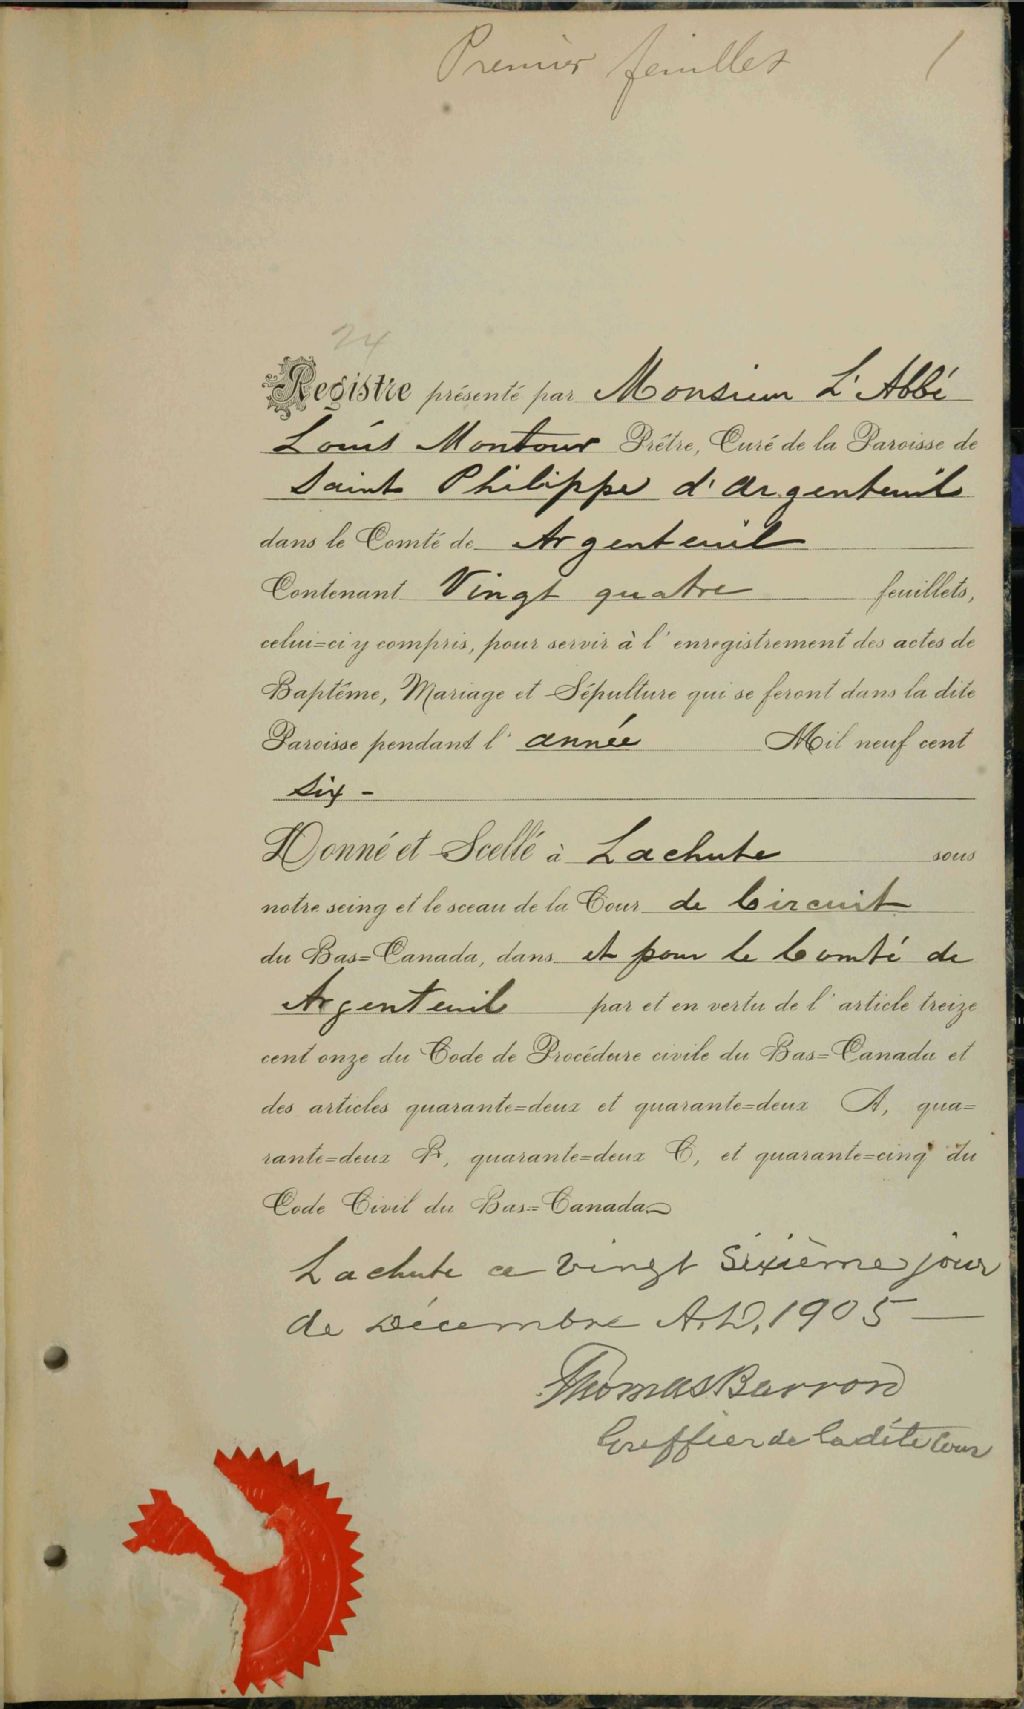 Premier feuillet 1
24
Registre présenté par Monsieur L'Abbé
Louis Montour Prêtre, Curé de la Paroisse de
Saint Philippe d'Argenteuil
dans le Comté de Argenteuil
Contenant Vingt quatre feuillets,
celui=ci y compris, pour servir à l'enregistrement des actes de
Baptême, Mariage et Sépulture qui se feront dans la dite
Paroisse pendant l'année Mil neuf cent
six -
Donné et Scellé à Lachute sous
notre seing et le sceau de la Cour de Circuit
du Bas=Canada, dans et pour le Comté de
Argenteuil par et en vertu de l'article treize
cent onze du Code de Procédure civile du Bas=Canada et
des articles quarante=deux et quarante=deux A, qua=
rante=deux B, quarante=deux C, et quarante=cinq du
Code Civil du Bas=Canada.
Lachute ce vingt Sixième jour
de Décembre A.D. 1905
Thomas Barron
Greffier de la dite Cour